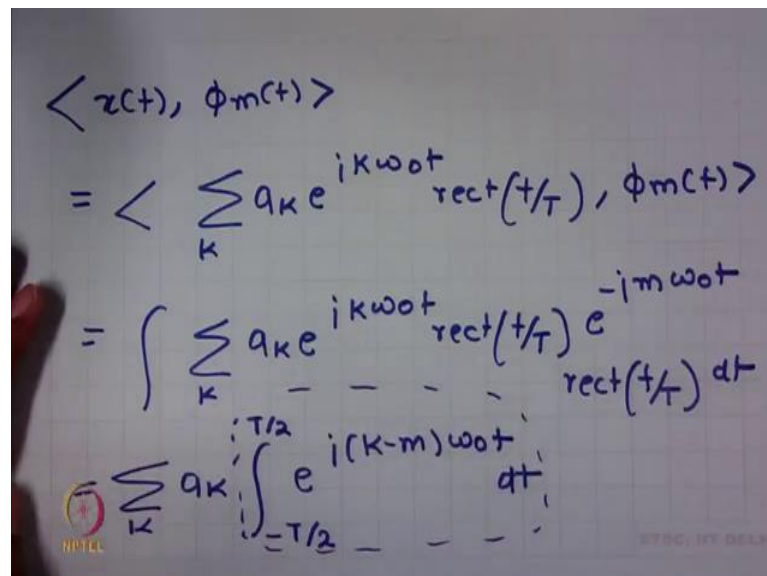 < x(t), φm(t) >
= < Σ_K a_K e^{jKω0t} rect(t/T), φm(t) >
= ∫ Σ_K a_K e^{jKω0t} rect(t/T) e^{-jmω0t} rect(t/T) dt
= Σ_K a_K ∫_{-T/2}^{T/2} e^{j(K-m)ω0t} dt
NPTEL
ETSC, IIT DELHI